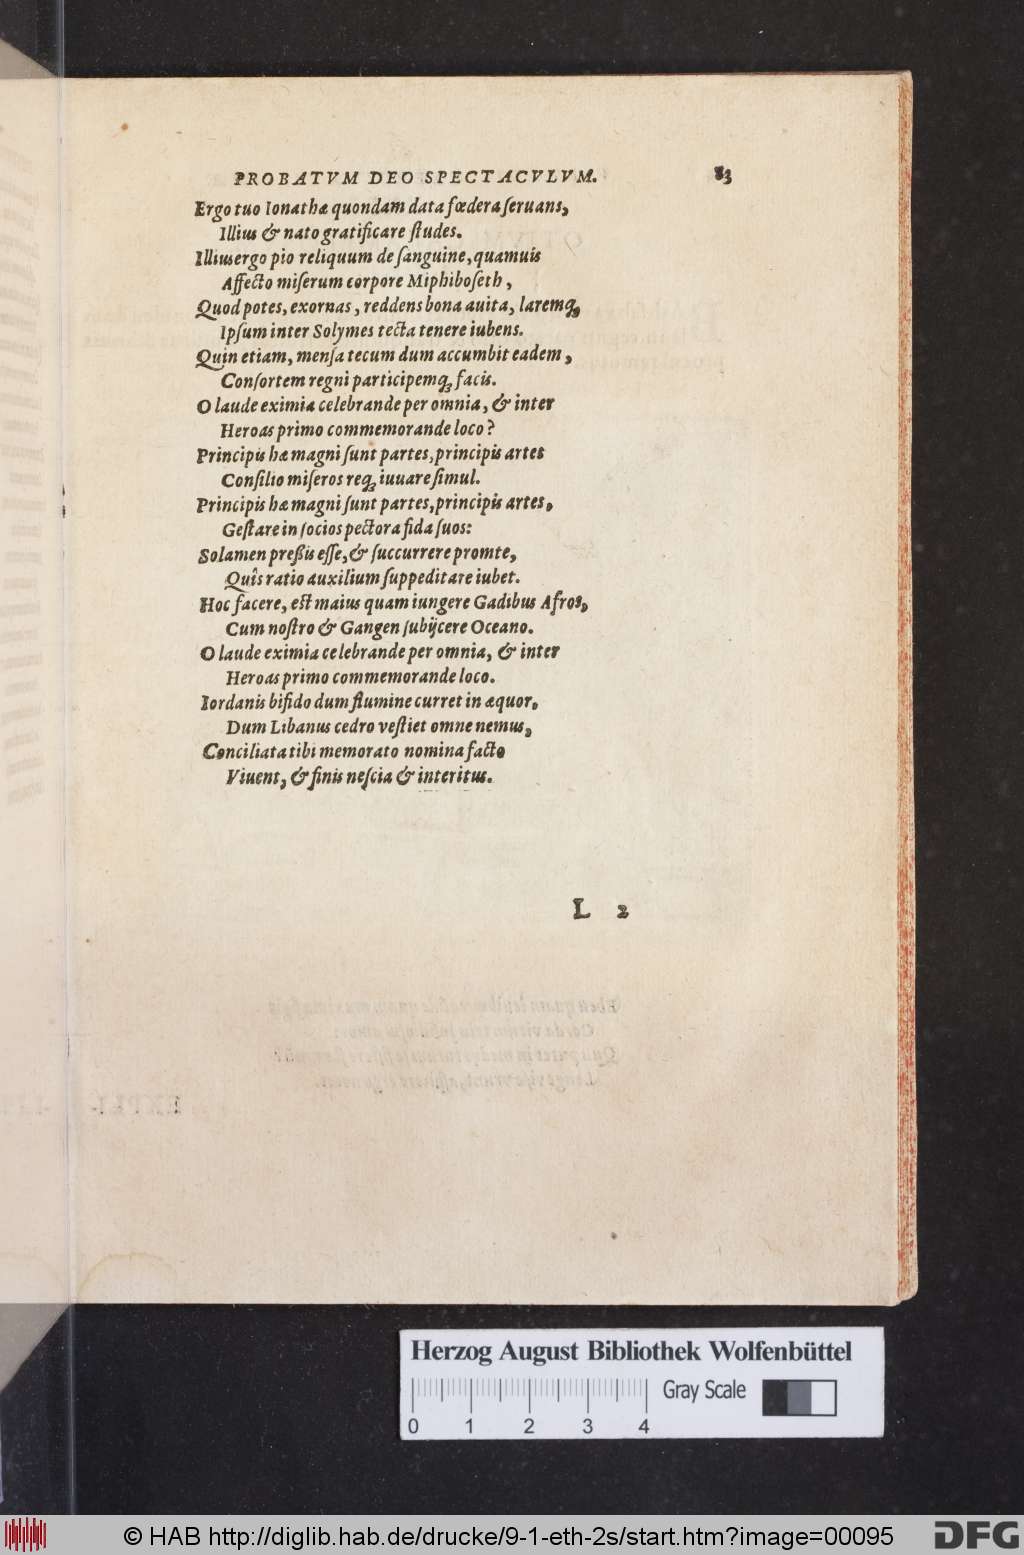 PROBATVM DEO SPECTACVLVM. 83
Ergo tuo Ionathæ quondam data fœdera ſeruans,
Illius & nato gratificare ſtudes.
Illius ergo pio reliquum de ſanguine, quamuis
Affecto miſerum corpore Miphiboſeth,
Quod potes, exornas, reddens bona auita, laremq́;
Ipſum inter Solymes tecta tenere iubens.
Quin etiam, menſa tecum dum accumbit eadem,
Conſortem regni participemq́; facis.
O laude eximia celebrande per omnia, & inter
Heroas primo commemorande loco?
Principis hæ magni ſunt partes, principis artes
Conſilio miſeros req́; iuuare ſimul.
Principis hæ magni ſunt partes, principis artes,
Geſtare in ſocios pectora fida ſuos:
Solamen preßis eſſe, & ſuccurrere promte,
Quîs ratio auxilium ſuppeditare iubet.
Hoc facere, eſt maius quam iungere Gadibus Afros,
Cum noſtro & Gangen ſubijcere Oceano.
O laude eximia celebrande per omnia, & inter
Heroas primo commemorande loco.
Iordanis bifido dum flumine curret in æquor,
Dum Libanus cedro veſtiet omne nemus,
Conciliata tibi memorato nomina facto
Viuent, & finis neſcia & interitus.
L 2
Herzog August Bibliothek Wolfenbüttel
Gray Scale
0 1 2 3 4
© HAB http://diglib.hab.de/drucke/9-1-eth-2s/start.htm?image=00095
DFG